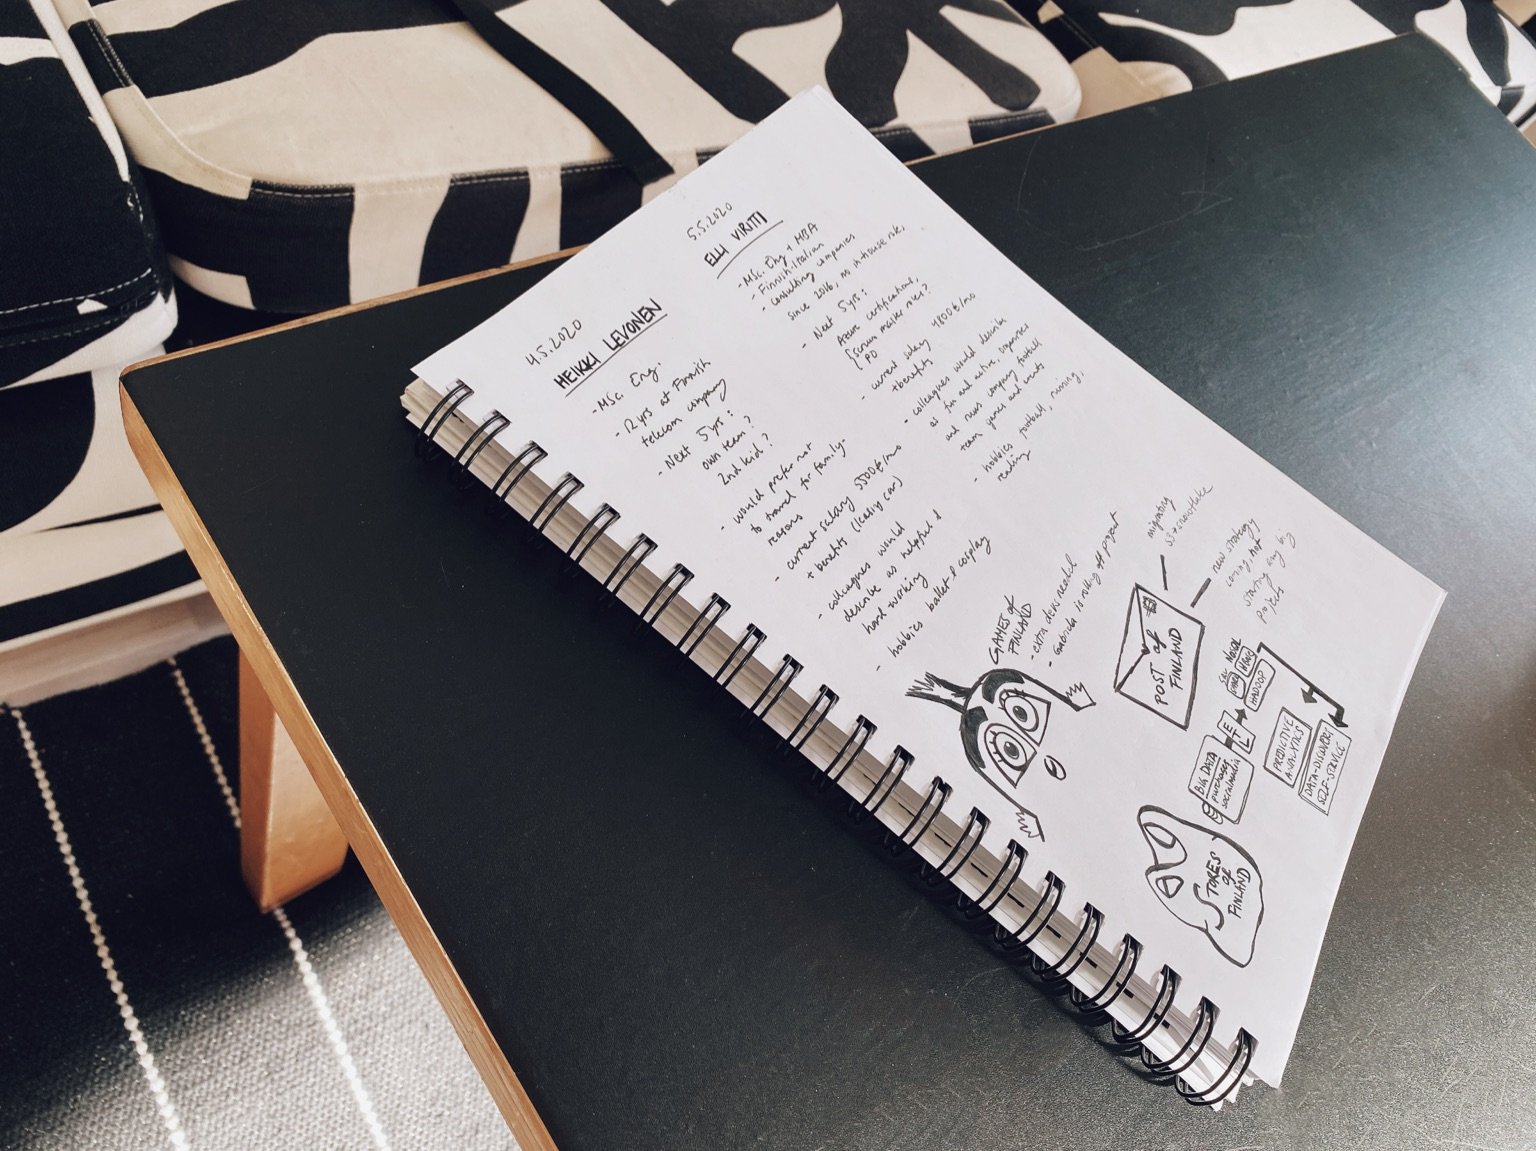 4.5.2020
HEIKKI LEVONEN
- MSc. Eng.
- 12 yrs at Finnish
telecom company
- Next 5yrs:
own team?
2nd kid?
- would prefer not
to travel for family-
reasons
- current salary 5500€/mo
+ benefits (leasing car)
- colleagues would
describe as helpful &
hard working
- hobbies ballet & cosplay
5.5.2020
ELLI VIRITTI
- MSc. Eng + MBA
- Finnish-Italian
- consulting companies
since 2016, no in-house
- Next 5yrs:
Azure certifications,
scrum master
PO
- current salary 4800€/mo
+ benefits
- colleagues would describe
as fun and active, organises
and runs company football
team games and events
- hobbies football, running,
reading
GAMES of
FINLAND
- extra devs needed
- Gabriela is rolling off project
migrating
S3 → snowflake
POST of
FINLAND
new strategy
coming, not
starting any big
projects
STORES
of
FINLAND
BIG DATA
purchases
socialmedia
E
T
L
SQL
NOSQL
HADOOP
PREDICTIVE
ANALYTICS
DATA-DISCOVERY
SELF-SERVICE